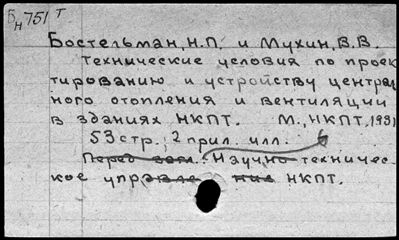 Бн 751 т
Бостельман, Н.П. и Мухин, В.В.
Технические условия по проек
тированию и устройству централ
ного отопления и вентиляции
в зданиях НКПТ. М., НКПТ, 1931
53 стр.; 2 прил. илл. б
Перед загл.: Научно-техничес-
кое управление НКПТ.